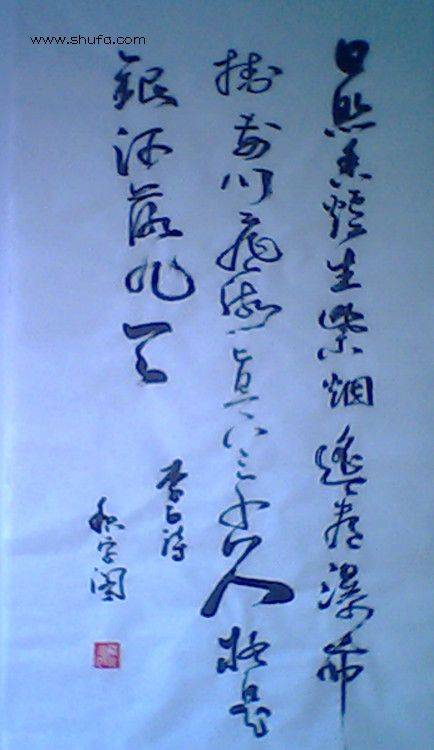 www.shufa.com
日照香炉生紫烟遥看瀑布
掛前川飛流直下三千尺疑是
銀河落九天
李白詩